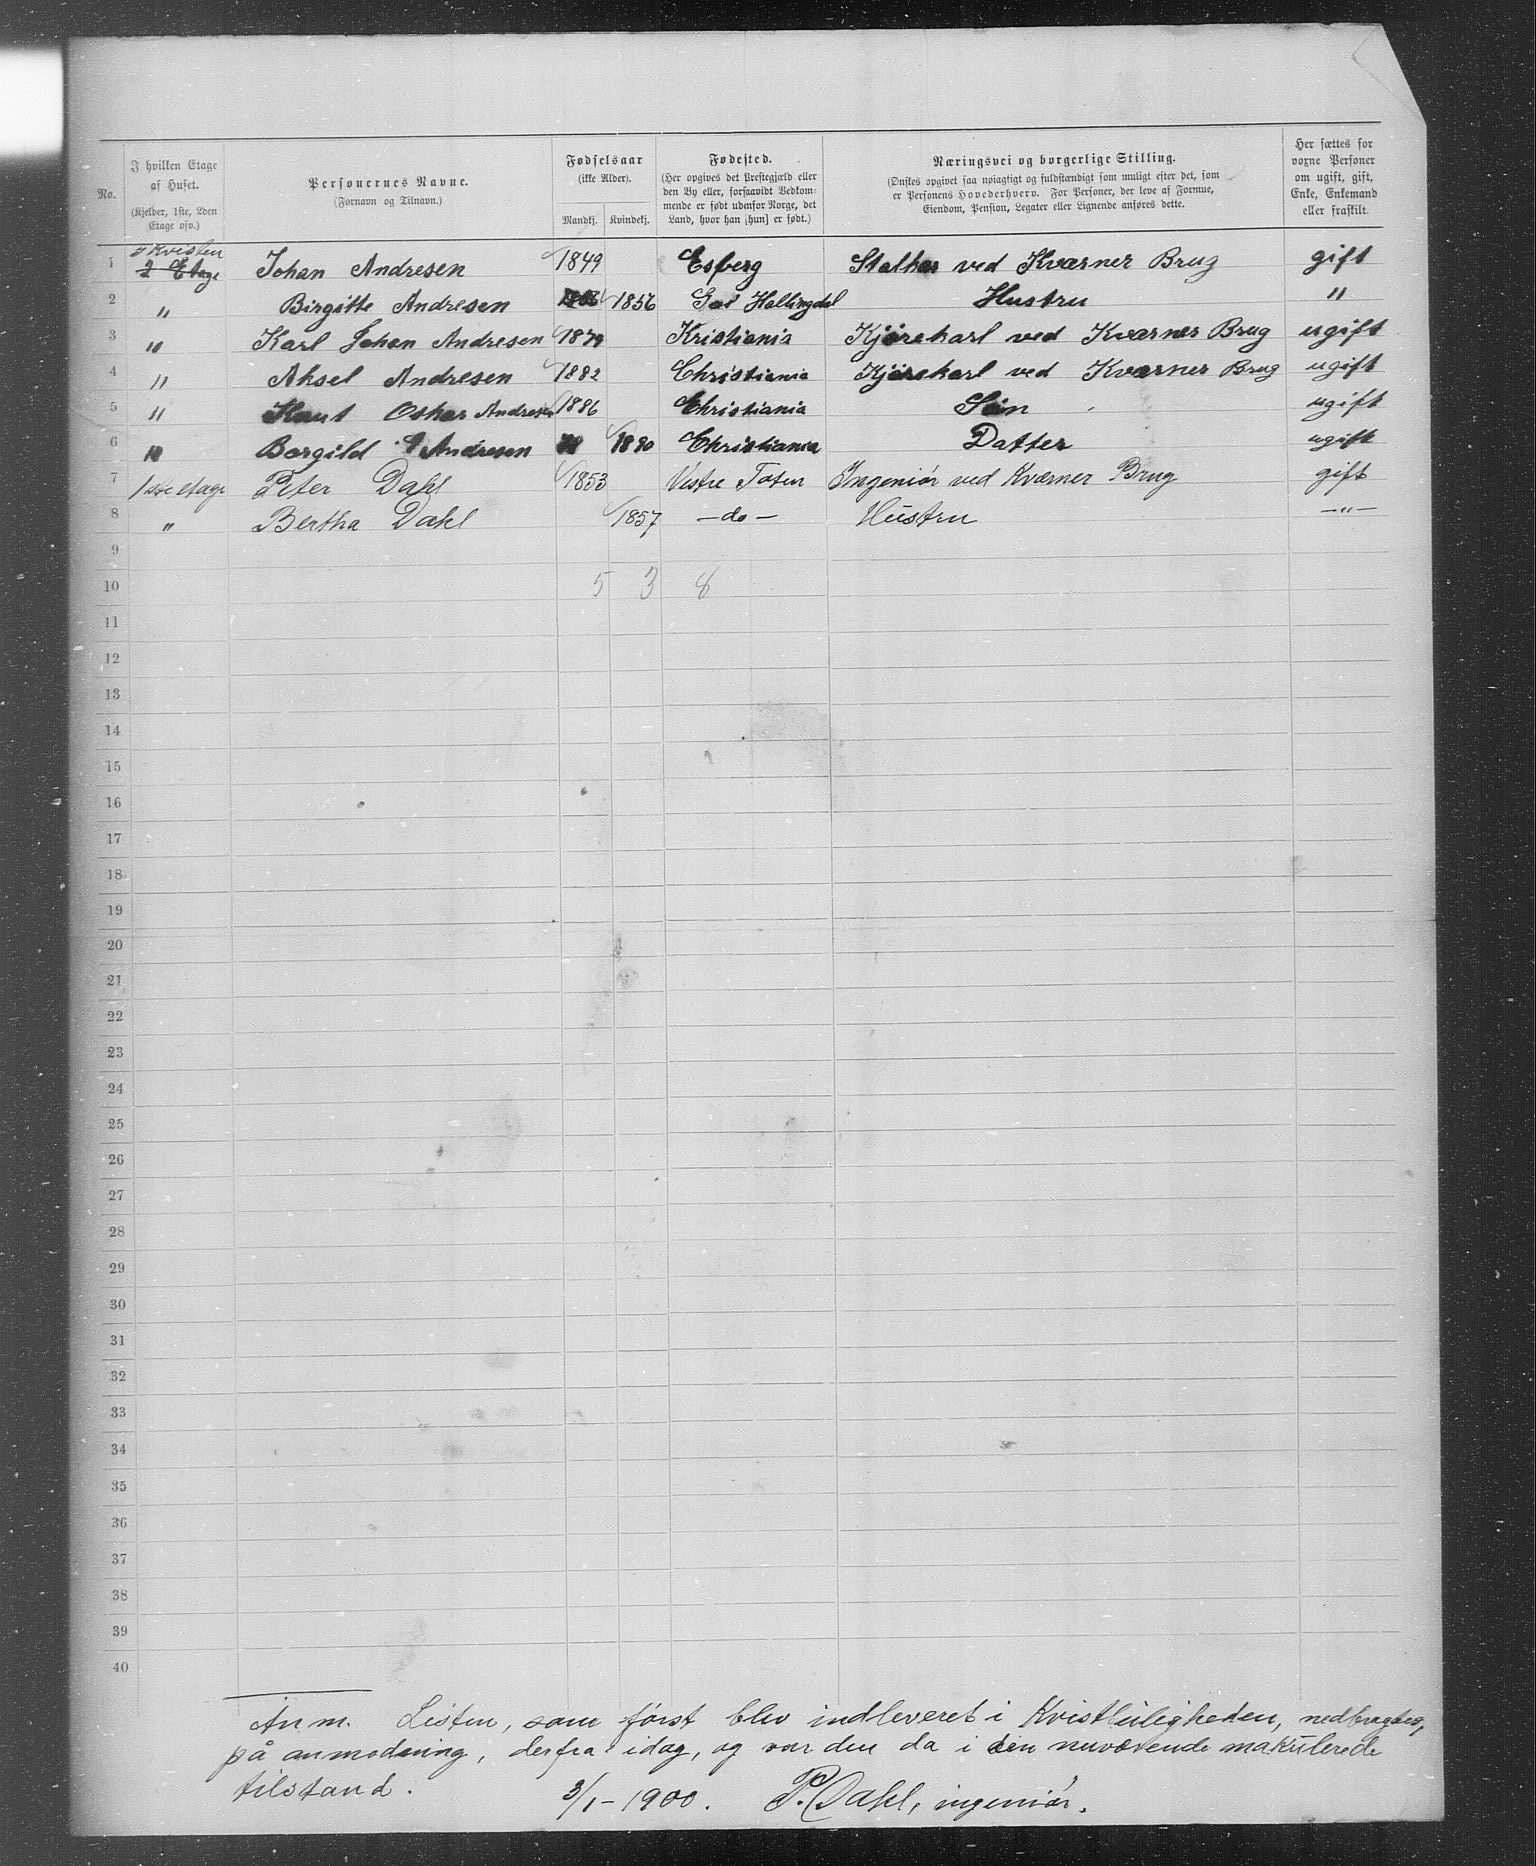 No.
I hvilken Etage af Huset.
(Kjelder, 1ste, 2den Etage osv.)
Personernes Navne.
(Fornavn og Tilnavn.)
Fødselsaar
(ikke Alder).
Mandkj. Kvindekj.
Fødested.
(Her opgives det Prestegjæld eller
den By eller, forsaavidt Vedkom-
mende er født udenfor Norge, det
Land, hvor han [hun] er født.)
Næringsvei og borgerlige Stilling.
(Ønskes opgivet saa nøiagtigt og fuldstændigt som muligt efter det, som
er Personens Hovederhverv. For Personer, der leve af Formue,
Eiendom, Pension, Legater eller Lignende anføres dette.
Her sættes for
voxne Personer
om ugift, gift,
Enke, Enkemand
eller fraskilt.
Kvisten
1 2 Etage Johan Andresen 1849 Esberg ved Kværner Brug gift
2 " Birgitte Andresen 1856 Hallingdal Hustru "
3 " Karl Johan Andresen 1879 Kristiania Kjørekarl ved Kværner Brug ugift
4 " Aksel Andresen 1882 Christiania Kjørekarl ved Kværner Brug ugift
5 " Oskar Andresen 1886 Christiania Søn ugift
6 " Borgild Andresen 1890 Christiania Datter ugift
7 1ste etage Peter Dahl 1853 Vestre Toten Ingeniør ved Kværner Brug gift
8 " Bertha Dahl 1857 — do — Hustru — " —
9
10 5 3 8
11
12
13
14
15
16
17
18
19
20
21
22
23
24
25
26
27
28
29
30
31
32
33
34
35
36
37
38
39
40
Anm. Listen, som først blev indleveret i Kvistleiligheden, nedbragtes,
på anmodning, derfra idag, og var den da i sin nuværende makulerede
tilstand.
3/1 - 1900. P. Dahl, ingeniør.